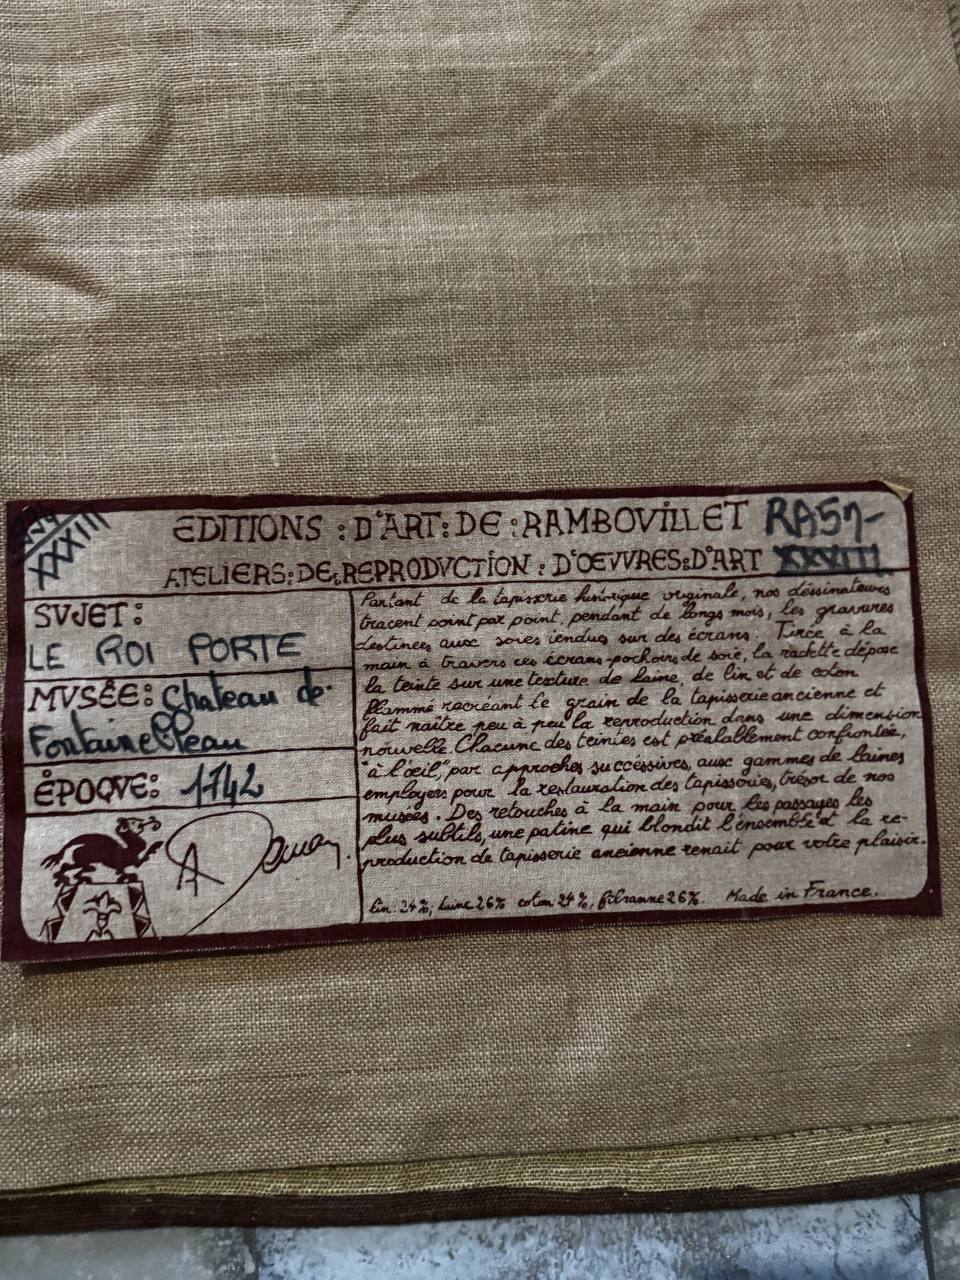 XXXIII
EDITIONS : D'ART : DE : RAMBOVILLET
RA57-
ATELIERS : DE : REPRODVCTION : D'OEVVRES : D'ART
XXVIII
SVJET :
LE ROI PORTE
MVSÉE : Chateau de
Fontainebleau
ÉPOQVE : 1742
Partant de la tapisserie historique originale, nos déssinateurs
tracent point par point, pendant de longs mois, les gravures
destinées aux soies tendues sur des écrans. Tirée à la
main à travers ces écrans-pochoirs de soie, la raclette dépose
la teinte sur une texture de laine, de lin et de coton
flammé recréant le grain de la tapisserie ancienne et
fait naître peu à peu la reproduction dans une dimension
nouvelle. Chacune des teintes est préalablement confrontée,
"à l'oeil", par approches successives, aux gammes de laines
employées pour la restauration des tapisseries, trésor de nos
musées. Des retouches à la main pour les passages les
plus subtils, une patine qui blondit l'ensemble et la re-
production de tapisserie ancienne renait pour votre plaisir.
lin : 24%, laine 26% coton 24%, fibranne 26%. Made in France.